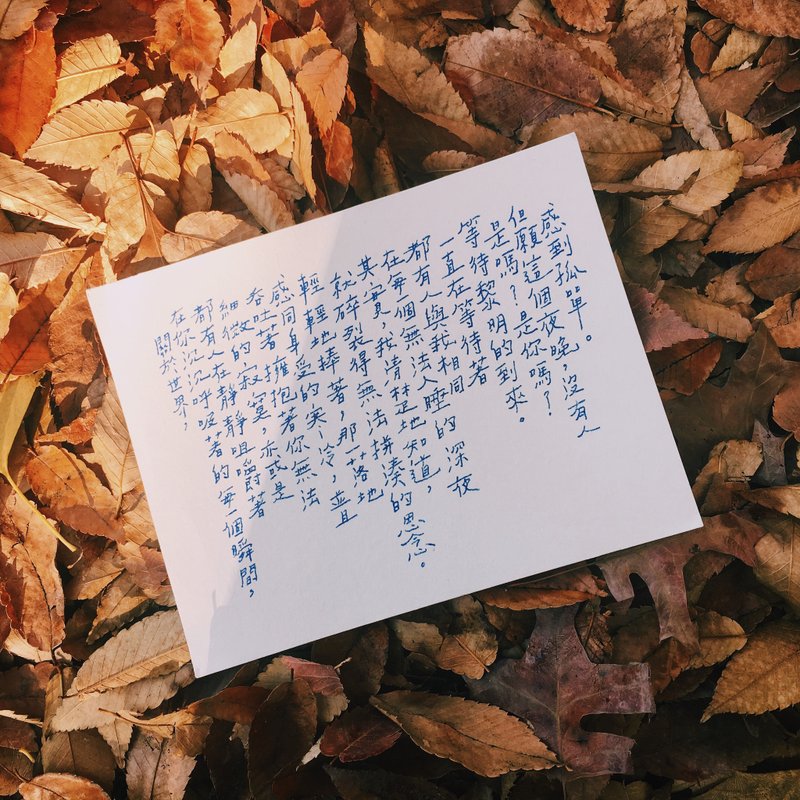 關於世界，
在你沉沉呼吸著的每一個瞬間，
都有人在靜靜咀嚼著
細微的寂寞，亦或是
吞吐著擁抱著你無法
感同身受的寒冷，並
輕輕地捧著，那一落地
就碎裂得無法拼湊的思念。
其實，我清楚地知道，
在每一個無法入睡的深夜
都有人與我相同
一直在等待著
等待黎明的到來。
是嗎？是你嗎？
但願這個夜晚，沒有人
感到孤單。